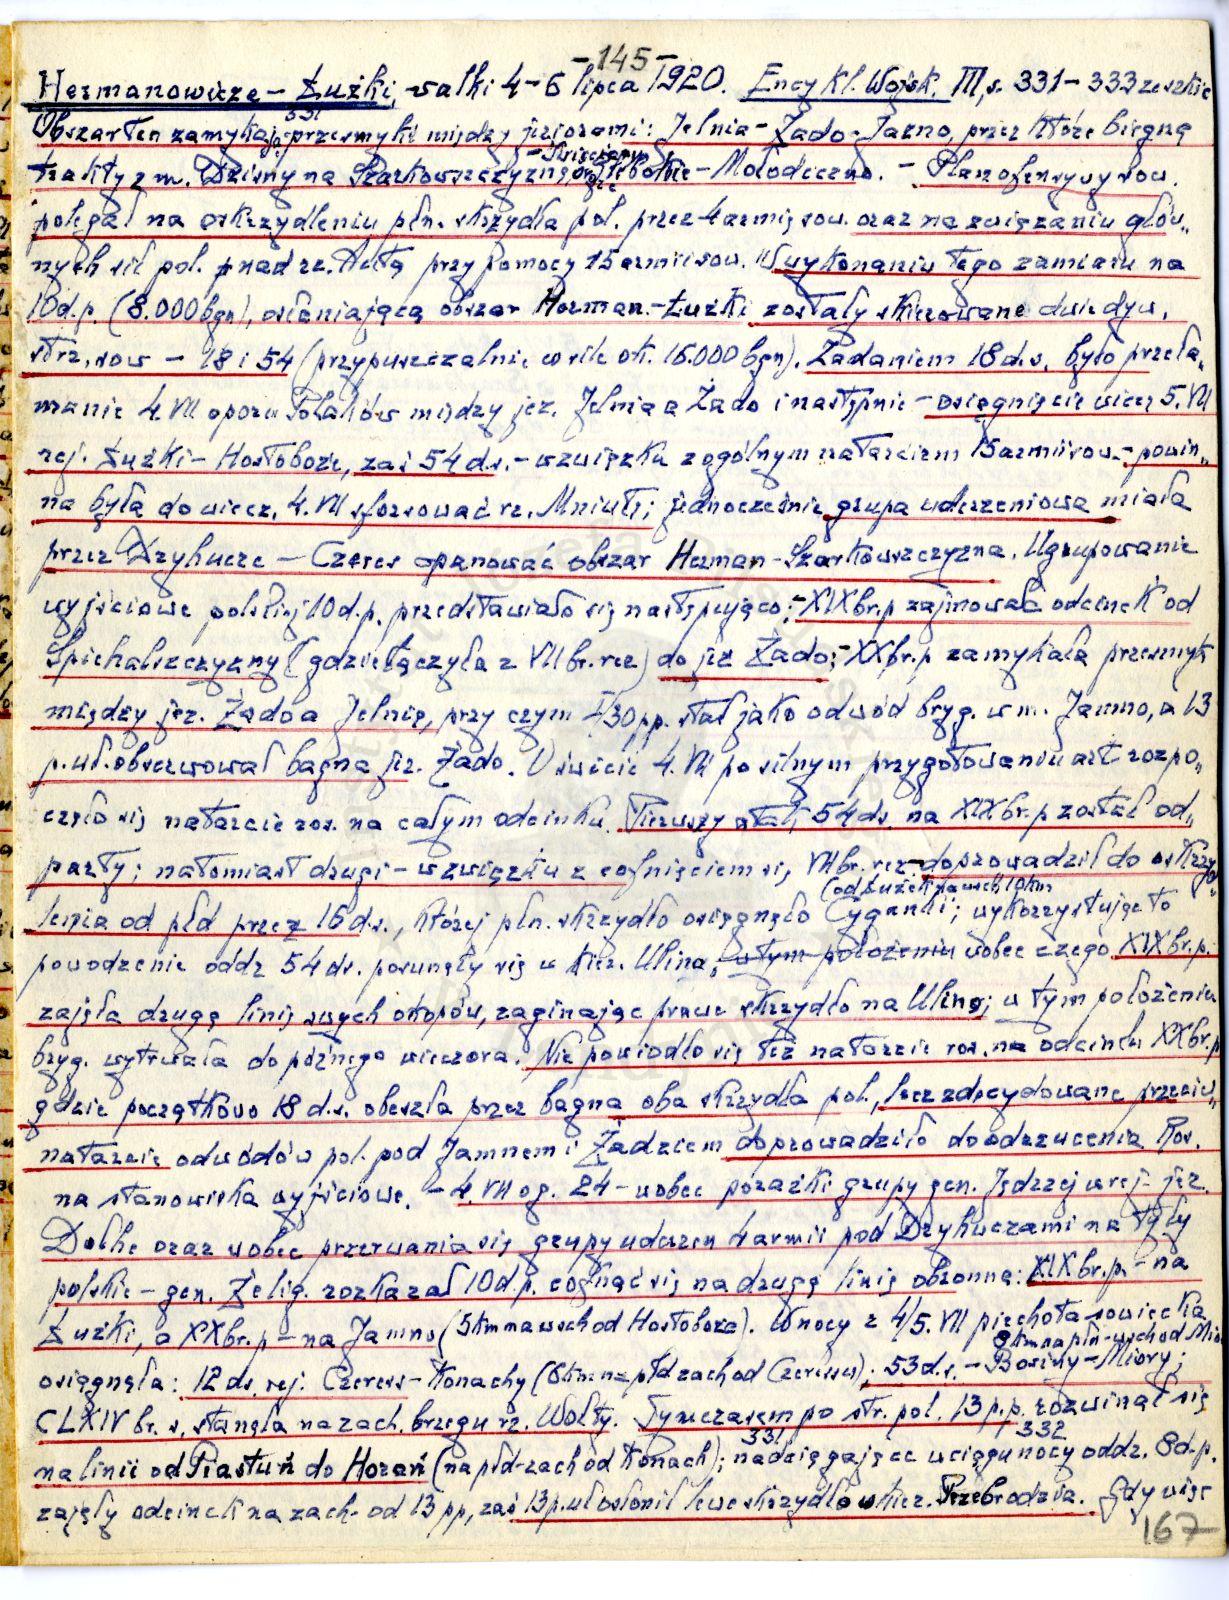 -145-
Hermanowicze - Łużki, walki 4-6 lipca 1920. Encykl. Wojsk. III, s. 331-333 zeszkic
331
Obszar ten zamykają przesmyki między jeziorami: Jelnia - Żado - Jazno, przez które biegną
- Święciany
trakty z m. Dzisny na Szarkowszczyznę, oraz Głębokie - Mołodeczno. - Plan ofensywy sow.
polegał na oskrzydleniu płn. skrzydła pol. przez 4 armię sow. oraz na związaniu głów„
nych sił pol. nad rz. Autą przy pomocy 15 armii sow. W wykonaniu tego zamiaru na
10 d.p. (8.000 bgn), osłaniającą obszar Herman.-Łużki zostały skierowane dwie dyw.
strz. sow - 18 i 54 (przypuszczalnie w sile ok. 16.000 bgn). Zadaniem 18 d.s. było przeła„
manie 4.VII oporu Polaków między jez. Jelnią a Żado i następnie - osiągnięcie wiecz. 5.VII
rej. Łużki - Hostoboże, zaś 54 d.s. - w związku z ogólnym natarciem 15 armii sow. - powin„
na była do wiecz. 4.VII sforsować rz. Mniutę; jednocześnie grupa uderzeniowa miała
przez Dzyhucze - Czeres opanować obszar Herman - Szarkowszczyzna. Ugrupowanie
wyjściowe polskiej 10 d.p. przedstawiało się następująco: - XIX br.p zajmowała odcinek od
Spichalszczyzny (gdzie łączyła z VII br. rez) do jez Żado; - XX br.p zamykała przesmyk
między jez. Żado a Jelnię, przy czym I/30 pp. stał jako odwód bryg. w m. Jamno, a 13
p.uł. obserwował bagna jez. Żado. O świcie 4.VII po silnym przygotowaniu art rozpo„
częło się natarcie ros. na całym odcinku. Pierwszy atak 54 ds. na XIX br.p został od„
party; natomiast drugi - w związku z cofnięciem się VII br. rez - doprowadził do oskrzyd„
(od Łużek na wsch 10 km
lenia od płd przez 16 d.s., której płn. skrzydło osiągnęło Cyganki; wykorzystując to
powodzenie oddz 54 ds. posunęły się w kier. Ulina, w tym położeniu wobec czego XIX br.p.
zajęła drugą linię swych okopów, zaginając prawe skrzydło na Ulinę; w tym położeniu
bryg. wytrwała do późnego wieczora. Nie powiodło się też natarcie ros. na odcinku XX br.p
gdzie początkowo 18 d.s. obeszła przez bagna oba skrzydła pol., lecz zdecydowane przeciw„
natarcie odwodów pol. pod Jamnem i Żadziem doprowadziło do odrzucenia Ros.
na stanowiska wyjściowe. - 4.VII o g. 24 - wobec porażki grupy gen. Jędrzej w rej. jez.
Dołhe oraz wobec przerwania się grupy uderzen 4 armii pod Dzyhuczami na tyły
polskie - gen. Żelig. rozkazał 10 d.p. cofnąć się na drugą linię obronną: XIX br.p. - na
Łużki, a XX br.p - na Jamno (5 km na wsch od Hostoboża). W nocy z 4/5.VII piechota sowiecka
8 km na płn-wsch od Mior
osięgnęła: 12 ds. rej. Czeress - Konachy (6 km na płd zach od Czeressu); 53 d.s. - Bosiny - Miory;
CLXIV br. s. stanęła na zach. brzegu rz. Wołty. Tymczasem po str. pol. 13 p.p. rozwinął się
331 332
na linii od Piastuń do Horań (na płd-zach od Konach); nadciągające w ciągu nocy oddz. 8 d.p.
zajęły odcinek na zach. od 13 pp, zaś 13 p.uł osłonił lewe skrzydło w kier. Przebrodzia. Gdy więc
167